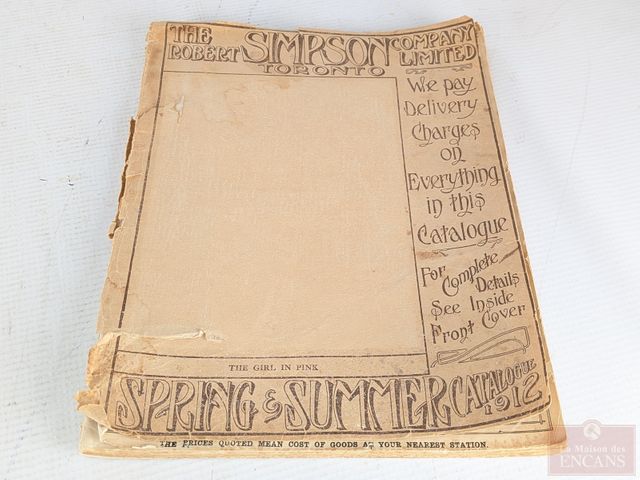 THE ROBERT SIMPSON COMPANY LIMITED
TORONTO
We pay
Delivery
Charges
on
Everything
in this
Catalogue
For
Complete
Details
See Inside
Front Cover
THE GIRL IN PINK
SPRING & SUMMER CATALOGUE 1912
THE PRICES QUOTED MEAN COST OF GOODS AT YOUR NEAREST STATION.
La Maison des
ENCANS